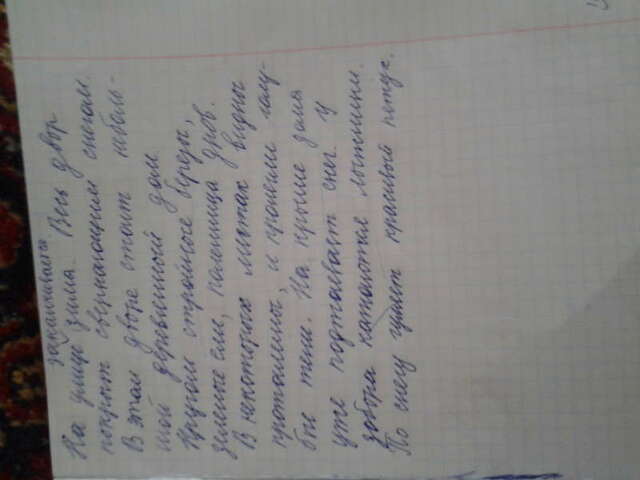 заканчивается
На улице зима. Весь двор
покрыт сверкающим снегом.
В этом дворе стоит неболь-
шой деревянный дом.
Кругом стройные березы,
зелёные ели, поленница дров.
В некоторых местах видны
проталины, и пролегли голу-
бые тени. На крыше дома
уже подтаивает снег. У
забора катаются лыжники.
По снегу гуляет красивый петух.